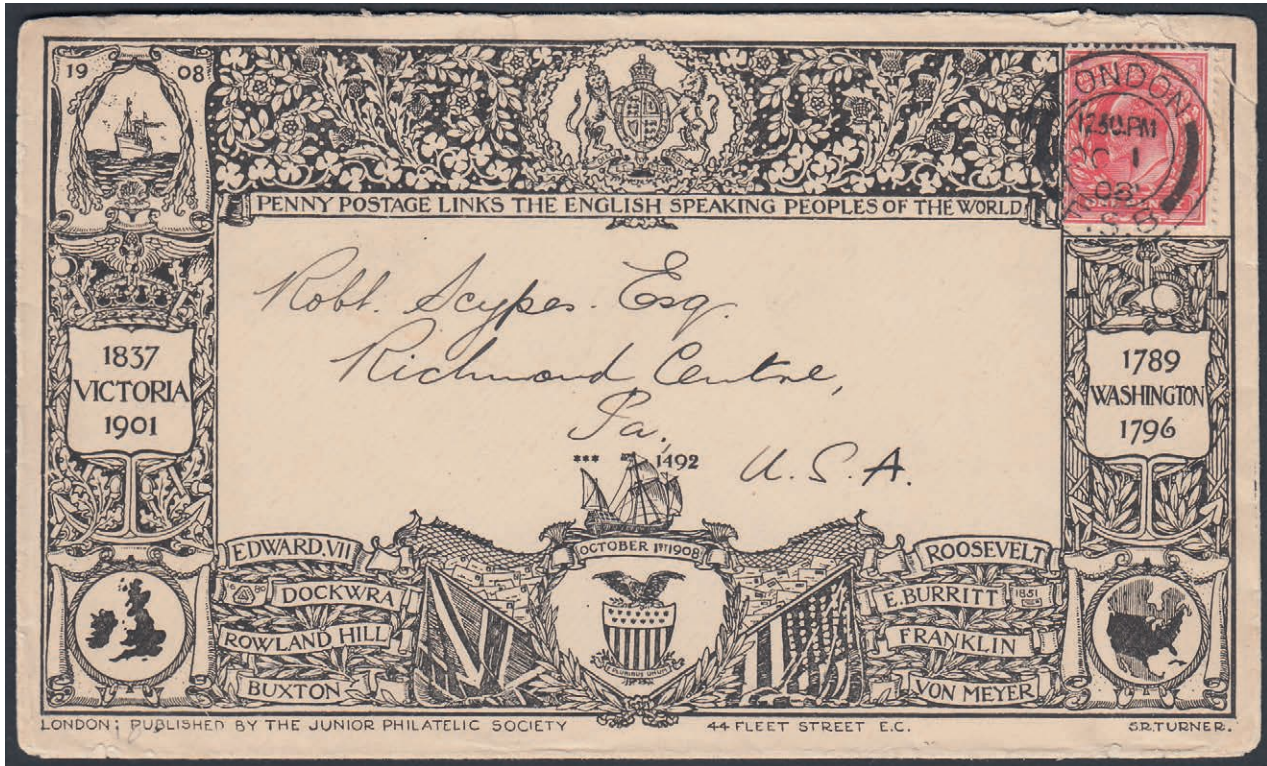 1908
LONDON
12.30.PM
OC 1
08
PENNY POSTAGE LINKS THE ENGLISH SPEAKING PEOPLES OF THE WORLD
Robt. Scypes. Esq.
Richmond Centre,
Pa.,
U.S.A.
1837
VICTORIA
1901
1789
WASHINGTON
1796
*** 1492
OCTOBER 1ST 1908
EDWARD.VII
DOCKWRA
ROWLAND HILL
BUXTON
ROOSEVELT
E.BURRITT 1851
FRANKLIN
VON MEYER
E PLURIBUS UNUM
LONDON; PUBLISHED BY THE JUNIOR PHILATELIC SOCIETY 44 FLEET STREET E.C. S.R.TURNER.